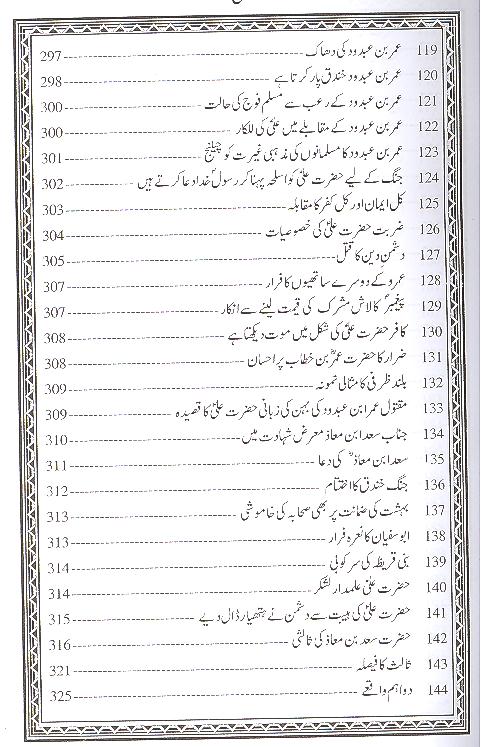 119 عمر بن عبدود کی دھاک 297
120 عمر بن عبدود خندق پار کرتا ہے 298
121 عمر بن عبدود کے رعب سے مسلم فوج کی حالت 300
122 عمر بن عبدود کے مقابلے میں علیؑ کی للکار 300
123 عمر بن عبدود کا مسلمانوں کی مذہبی غیرت کو چیلنج 301
124 جنگ کے لیے حضرت علیؑ کو اسلحہ پہنا کر رسولؐ خدا دعا کرتے ہیں 302
125 کل ایمان اور کل کفر کا مقابلہ 303
126 ضربت حضرت علیؑ کی خصوصیات 304
127 دشمن دین کا قتل 305
128 عمرو کے دوسرے ساتھیوں کا فرار 307
129 پیغمبرؐ کا لاش مشرک کی قیمت لینے سے انکار 307
130 کافر حضرت علیؑ کی شکل میں موت دیکھتا ہے 308
131 ضرار کا حضرت عمرؓ بن خطاب پر احسان 308
132 بلند ظرفی کا مثالی نمونہ 309
133 مقتول عمر ابن عبدود کی بہن کی زبانی حضرت علیؑ کا قصیدہ 309
134 جناب سعد ابن معاذ معرض شہادت میں 310
135 سعد ابن معاذؓ کی دعا 311
136 جنگ خندق کا اختتام 312
137 بہشت کی ضمانت پر بھی صحابہ کی خاموشی 313
138 ابوسفیان کا نعرہ فرار 313
139 بنی قریظہ کی سرکوبی 314
140 حضرت علیؑ علمدار لشکر 314
141 حضرت علیؑ کی ہیبت سے دشمن نے ہتھیار ڈال دیے 315
142 حضرت سعد بن معاذ کی ثالثی 316
143 ثالث کا فیصلہ 321
144 دو اہم واقعے 325